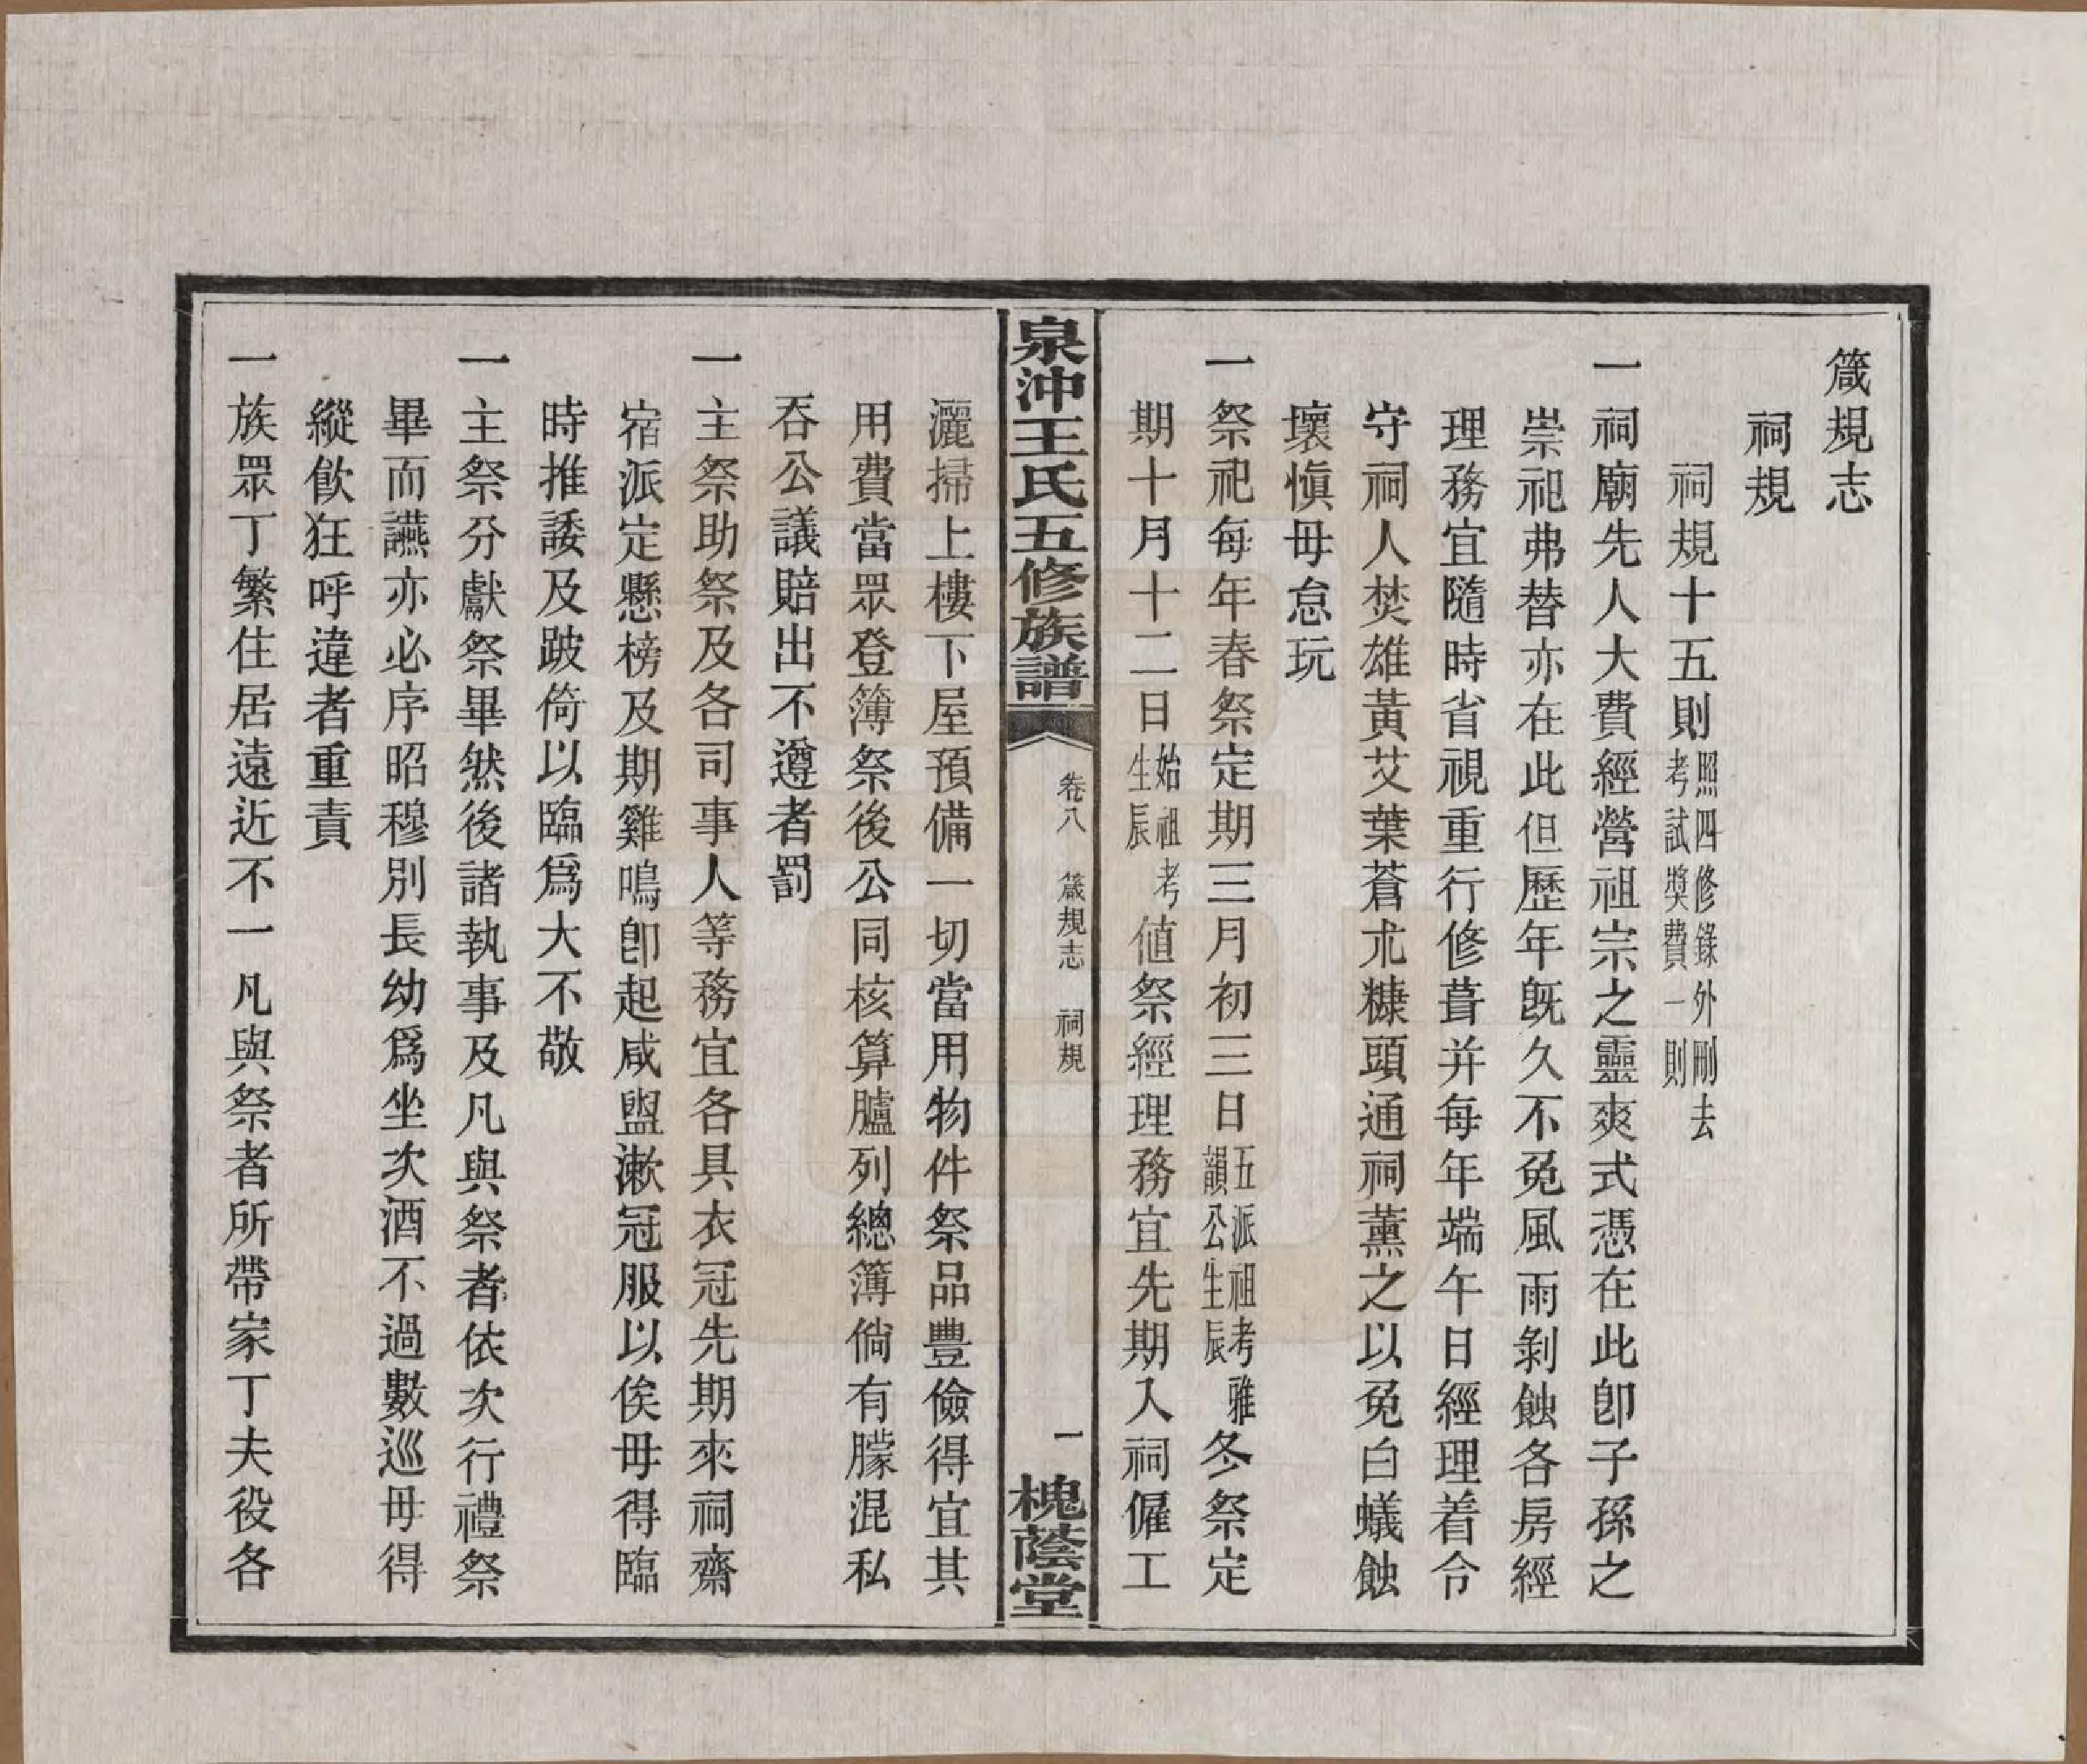 箴規志
祠規
祠規十五則照四修錄外刪去考試獎費一則
一祠廟先人大費經營祖宗之靈爽式憑在此卽子孫之
崇祀弗替亦在此但歷年旣久不免風雨剝蝕各房經
理務宜隨時省視重行修葺并每年端午日經理着令
守祠人焚雄黃艾葉蒼朮糠頭通祠薰之以免白蟻蝕
壞愼毋怠玩
一祭祀每年春祭定期三月初三日五派祖考雅韻公生辰冬祭定
期十月十二日始祖考生辰值祭經理務宜先期入祠僱工
泉沖王氏五修族譜
卷八 箴規志 祠規
一
槐蔭堂
灑掃上樓下屋預備一切當用物件祭品豐儉得宜其
用費當眾登簿祭後公同核算臚列總簿倘有朦混私
吞公議賠出不遵者罰
一主祭助祭及各司事人等務宜各具衣冠先期來祠齋
宿派定懸榜及期雞鳴卽起咸盥漱冠服以俟毋得臨
時推諉及跛倚以臨爲大不敬
一主祭分獻祭畢然後諸執事及凡與祭者依次行禮祭
畢而讌亦必序昭穆別長幼爲坐次酒不過數巡毋得
縱飮狂呼違者重責
一族眾丁繁住居遠近不一凡與祭者所帶家丁夫役各